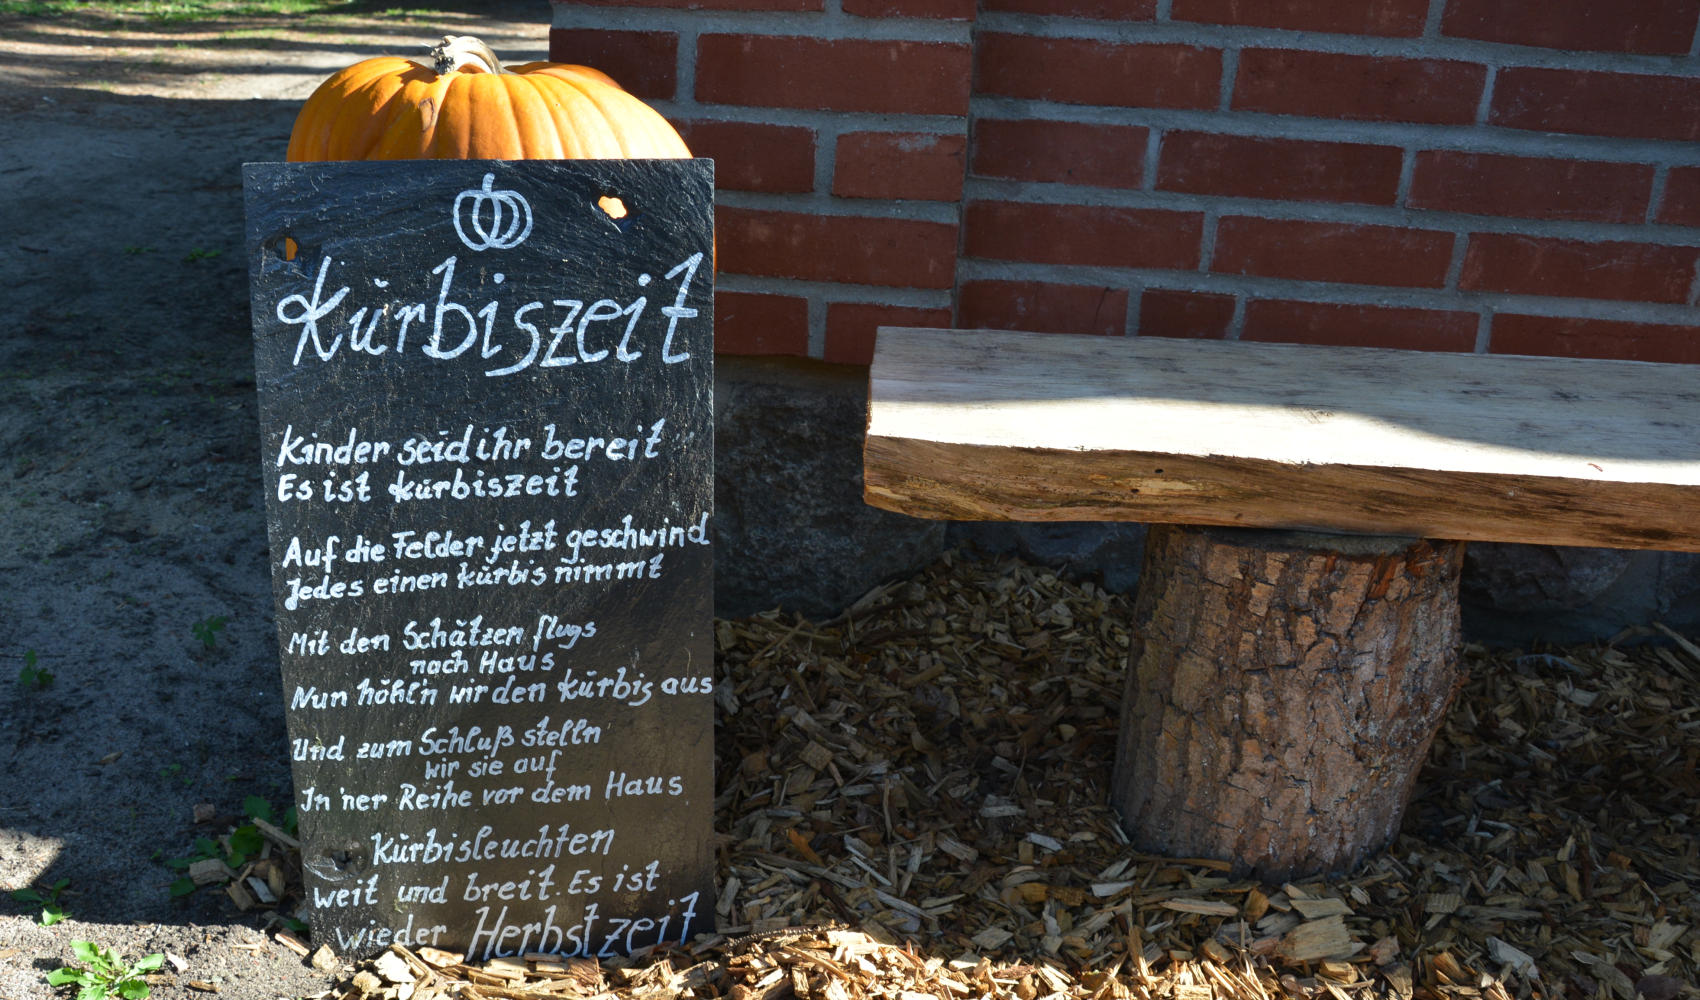 Kürbiszeit
Kinder seid ihr bereit
Es ist Kürbiszeit
Auf die Felder jetzt geschwind
Jedes einen Kürbis nimmt
Mit den Schätzen flugs
nach Haus
Nun höhl'n wir den Kürbis aus
Und zum Schluß stell'n
wir sie auf
In 'ner Reihe vor dem Haus
Kürbisleuchten
weit und breit. Es ist
wieder Herbstzeit